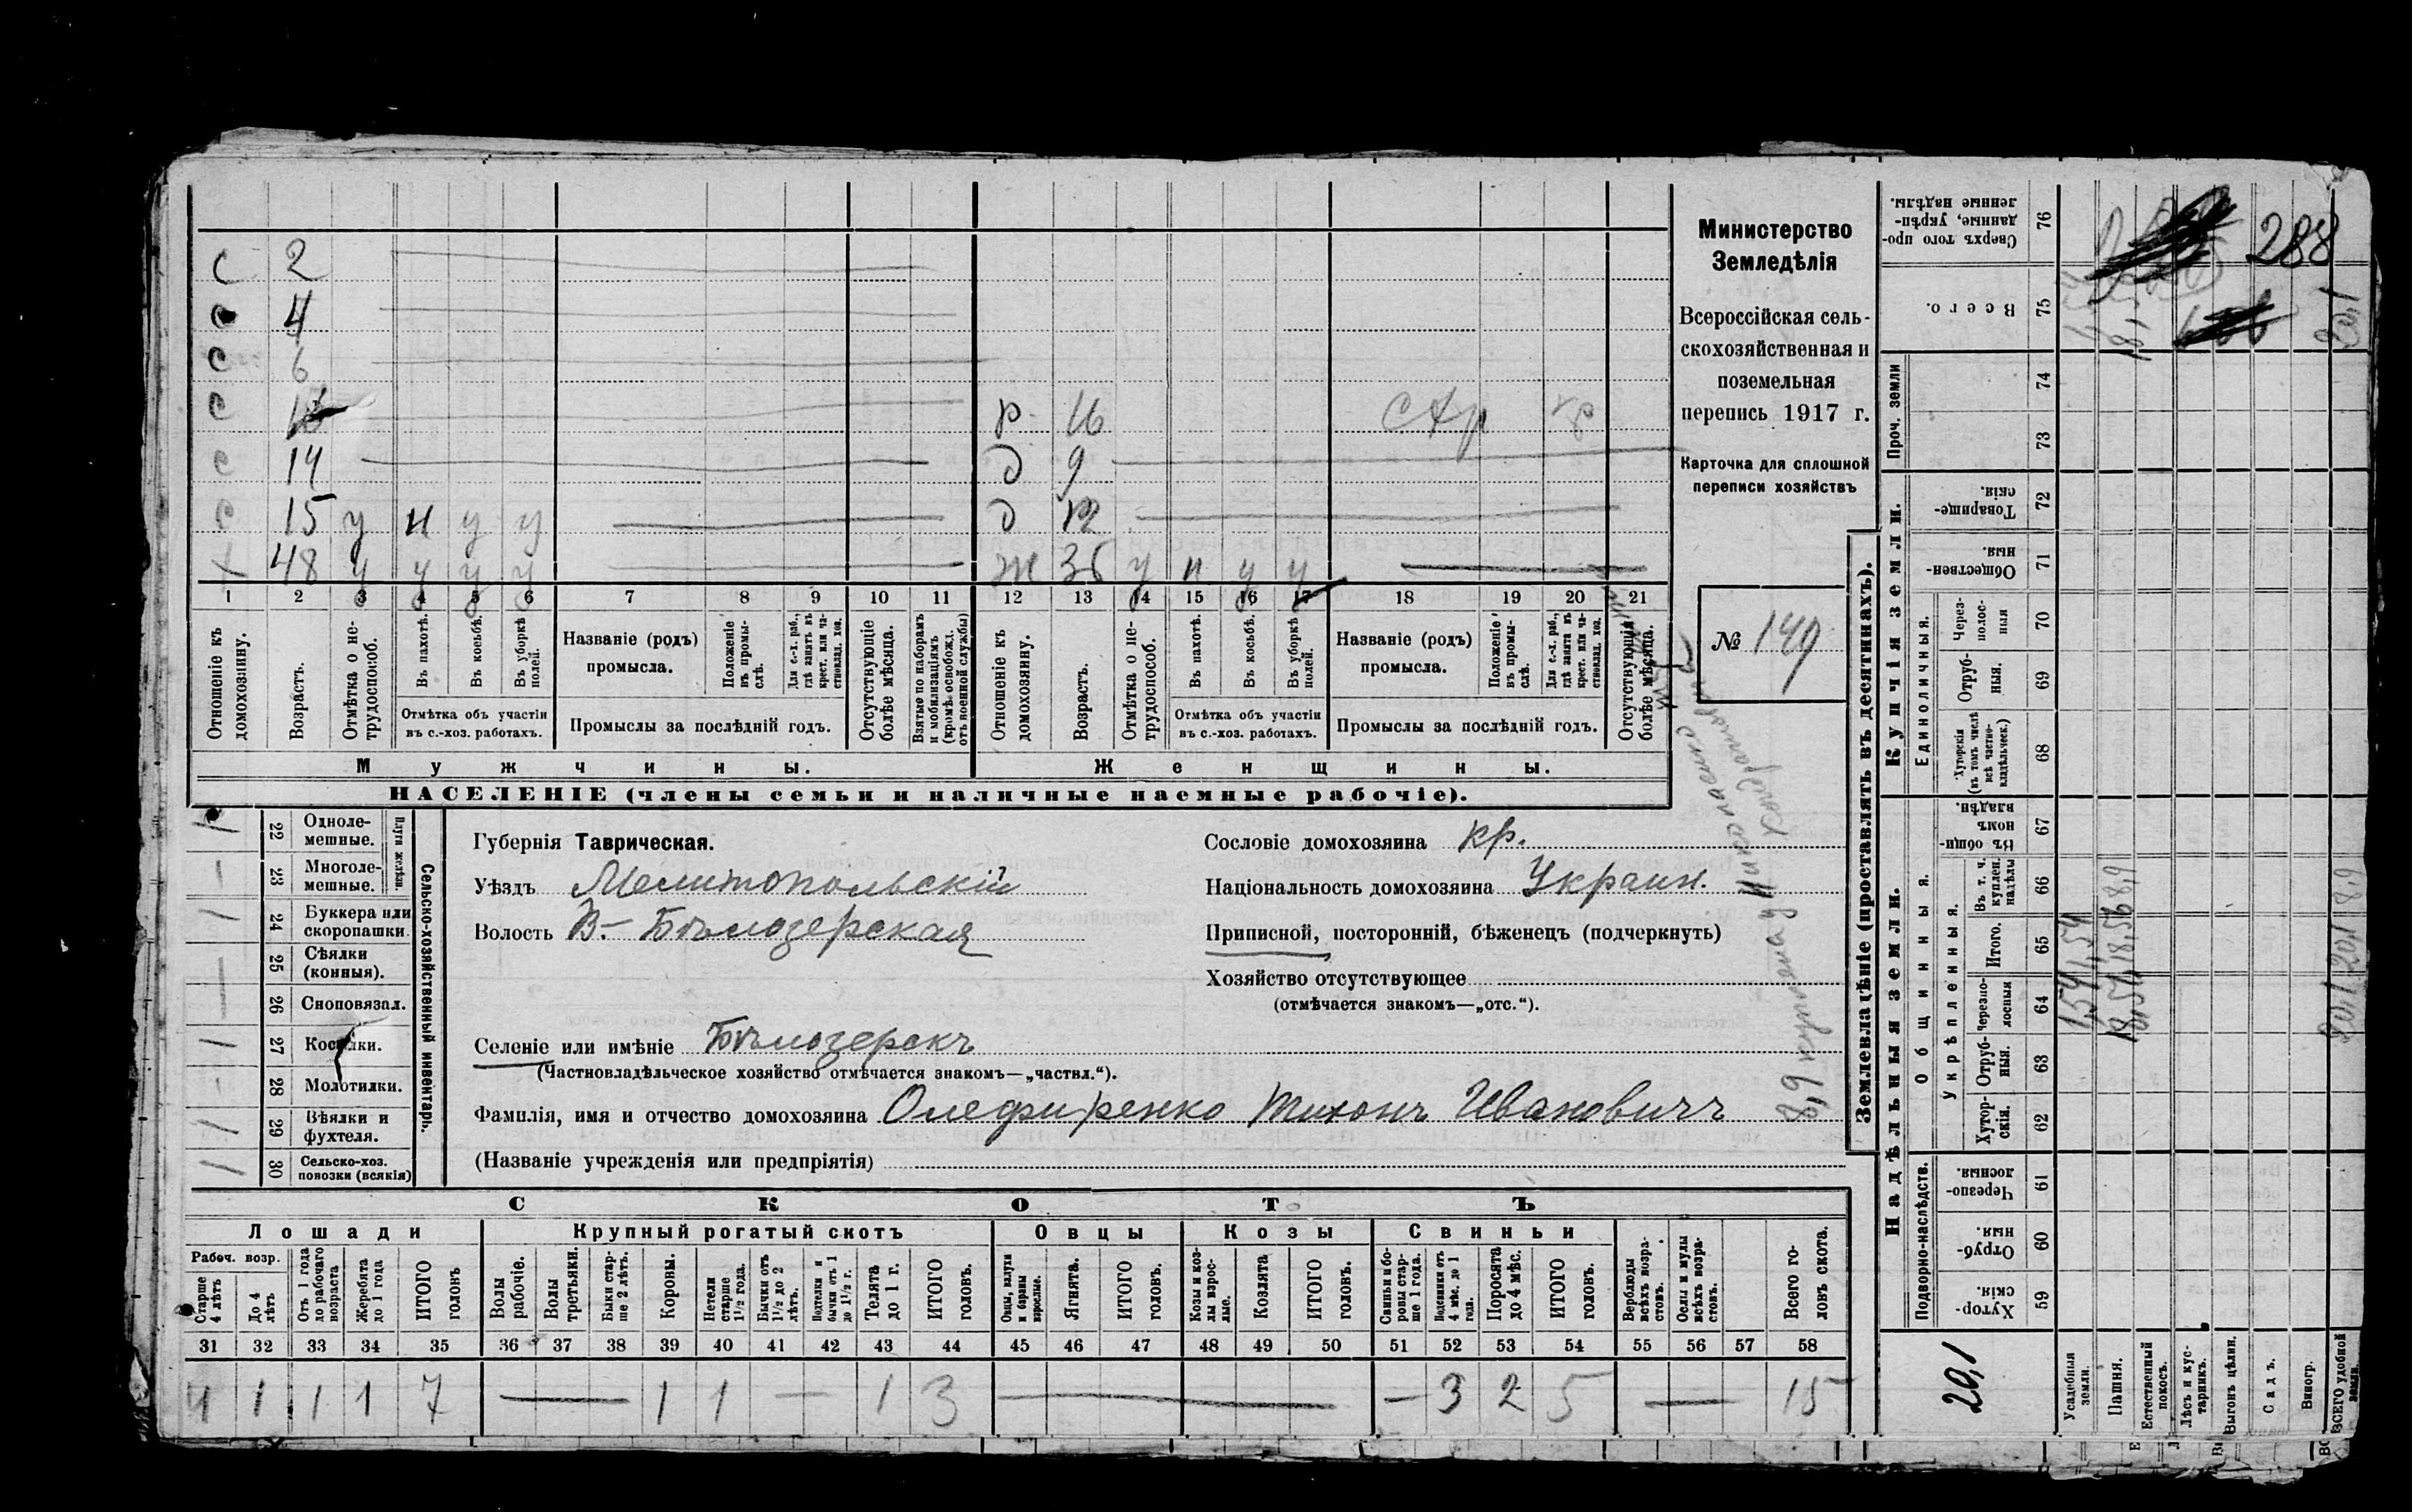 с 2
с 4
с 6
с
с 14
с 15 у н у у
х 48 у у у у
р 16 с хр
д 9
д 12
ж 36 у н у у
1 2 3 4 5 6 7 8 9 10 11 12 13 14 15 16 17 18 19 20 21
Отношеніе къ домохозяину.
Возрастъ.
Отмѣтка о не-
трудоспособ.
Въ пахотѣ.
Въ косьбѣ.
Въ уборкѣ
полей.
Отмѣтка объ участіи
въ с.-хоз. работахъ.
Названіе (родъ)
промысла.
Положеніе
въ промы-
слѣ.
Для с.-х. раб.,
гдѣ занятъ въ
крест. или ча-
стновлад. хоз.
Промыслы за послѣдній годъ.
Отсутствующіе
болѣе мѣсяца.
Взятые по наборамъ
и мобилизаціямъ
(кромѣ освобожд.
отъ военной службы)
Отношеніе къ
домохозяину.
Возрастъ.
Отмѣтка о не-
трудоспособ.
Въ пахотѣ.
Въ косьбѣ.
Въ уборкѣ
полей.
Отмѣтка объ участіи
въ с.-хоз. работахъ.
Названіе (родъ)
промысла.
Положеніе
въ промы-
слѣ.
Для с.-х. раб.,
гдѣ занята въ
крест. или ча-
стновлад. хоз.
Промыслы за послѣдній годъ.
Отсутствующія
болѣе мѣсяца.
Мужчины.
Женщины.
НАСЕЛЕНІЕ (члены семьи и наличные наемные рабочіе).
Министерство
Земледѣлія
Всероссійская сель-
скохозяйственная и
поземельная
перепись 1917 г.
Карточка для сплошной
переписи хозяйствъ
№ 149
1 22 Одноле-
мешные.
— 23 Многоле-
мешные.
Плуги желѣзн.
1 24 Буккера или
скоропашки
— 25 Сѣялки
(конныя).
— 26 Сноповязал.
1 27 Косилки.
— 28 Молотилки.
1 29 Вѣялки и
фухтеля.
1 30 Сельско-хоз.
повозки (всякія)
Сельско-хозяйственный инвентарь.
Губернія Таврическая.
Уѣздъ Мелитопольскій
Волость В.-Бѣлозерская
Селеніе или имѣніе Бѣлозерскъ
(Частновладѣльческое хозяйство отмѣчается знакомъ—„частвл.“).
Фамилія, имя и отчество домохозяина Олефиренко Тихонъ Ивановичъ
(Названіе учрежденія или предпріятія)
Сословіе домохозяина кр.
Національность домохозяина Украин.
Приписной, посторонній, бѣженецъ (подчеркнуть)
Хозяйство отсутствующее
(отмѣчается знакомъ—„отс.“).
8,9 куплена у
СКОТЪ
Лошади
Крупный рогатый скотъ
Овцы
Козы
Свиньи
Рабоч. возр.
Старше
4 лѣтъ
До 4
лѣтъ
Отъ 1 года
до рабочаго
возраста
Жеребята
до 1 года
ИТОГО
головъ
Волы
рабочіе.
Волы
третьяки.
Быки стар-
ше 2 лѣтъ.
Коровы.
Нетели
старше
1½ года.
Бычки отъ
1½ до 2
лѣтъ.
Подтелки и
бычки отъ 1
до 1½ г.
Телята
до 1 г.
ИТОГО
головъ.
Овцы, валухи
и бараны
взрослые.
Ягнята.
ИТОГО
головъ.
Козы и коз-
лы взрос-
лые.
Козлята
ИТОГО
головъ.
Свиньи и бо-
ровы стар-
ше 1 года.
Подсвинки отъ
4 мѣс. до 1
года.
Поросята
до 4 мѣс.
ИТОГО
головъ.
Верблюды
всѣхъ возра-
стовъ.
Ослы и мулы
всѣхъ возра-
стовъ.
Всего го-
ловъ скота.
31 32 33 34 35 36 37 38 39 40 41 42 43 44 45 46 47 48 49 50 51 52 53 54 55 56 57 58
4 1 1 1 7 — 1 1 — 1 3 — — 3 2 5 — 15
Землевладѣніе (проставлять въ десятинахъ).
Надѣльныя земли.
Купчія земли.
Проч. земли
Подворно-наслѣдств.
Общинныя.
Укрѣпленныя.
Единоличныя.
Сверхъ того про-
данные, укрѣп-
ленные надѣлы. 76
Всего. 75
74
73
Товарище-
скія. 72
Обществен-
ныя. 71
Через-
полос-
ныя 70
Отруб-
ныя. 69
Хуторскія
(въ томъ числѣ
всѣ частно-
владѣльческ.) 68
Въ общин-
номъ
владѣн. 67
Въ т. ч.
куплен.
надѣлы 66
Итого. 65
Черезпо-
лосныя 64
Отруб-
ныя. 63
Хутор-
скія. 62
Черезпо-
лосныя. 61
Отруб-
ныя. 60
Хутор-
скія. 59
288
20,1
1,54 1,54
18,56 18,56 8,9
20,1 20,1 8,9
20,1
Усадебныя
земли.
Пашня.
Естественный
покосъ.
Лѣсъ и кус-
тарникъ.
Выгонъ цѣлин.
Садъ.
Виногр.
ВСЕГО удобной
земли.